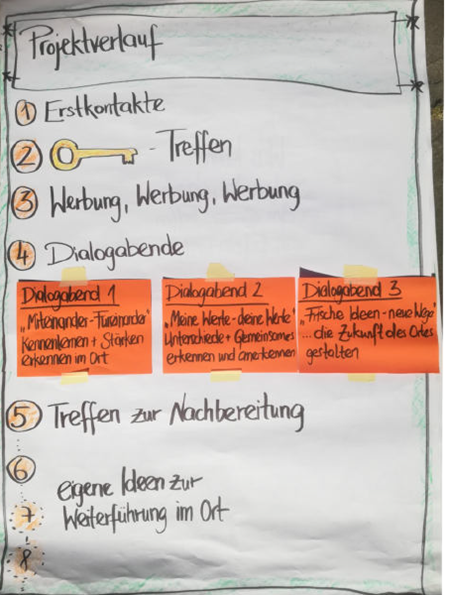 Projektverlauf
1 Erstkontakte
2 - Treffen
3 Werbung, Werbung, Werbung
4 Dialogabende
Dialogabend 1
„Miteinander-Füreinander"
Kennenlernen + Stärken
erkennen im Ort
Dialogabend 2
„Meine Werte - deine Werte"
Unterschiede + Gemeinsames
erkennen und anerkennen
Dialogabend 3
„Frische Ideen - neue Wege"
...die Zukunft des Ortes
gestalten
5 Treffen zur Nachbereitung
6
eigene Ideen zur
7 Weiterführung im Ort
8